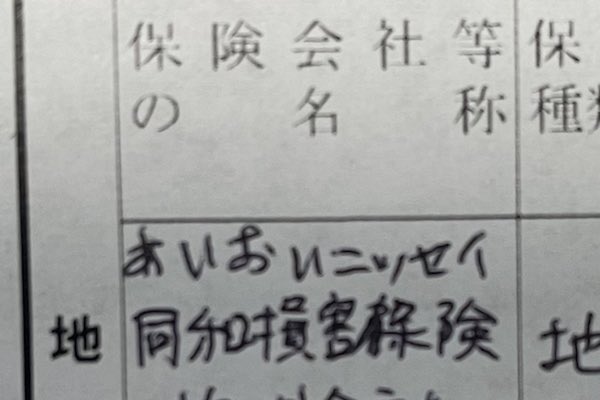 保険会社等 保
の名称 種類
あいおいニッセイ
地 同和損害保険 地